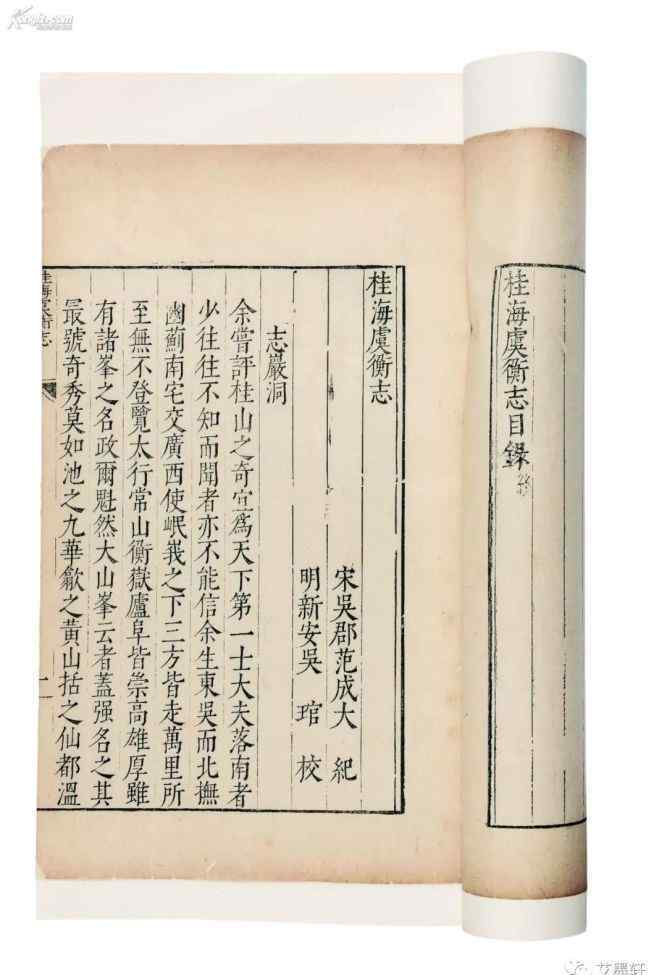 Kongfz.com
桂海虞衡志目錄
桂海虞衡志
宋吳郡范成大　紀
明新安吳　琯　校
志巖洞
余嘗評桂山之奇宜爲天下第一士大夫落南者
少往往不知而聞者亦不能信余生東吳而北撫
幽薊南宅交廣西使岷峩之下三方皆走萬里所
至無不登覽太行常山衡嶽廬阜皆崇高雄厚雖
有諸峯之名政爾魁然大山峯云者蓋强名之其
最號奇秀莫如池之九華歙之黃山括之仙都溫
桂海虞衡志
一
艾墨轩